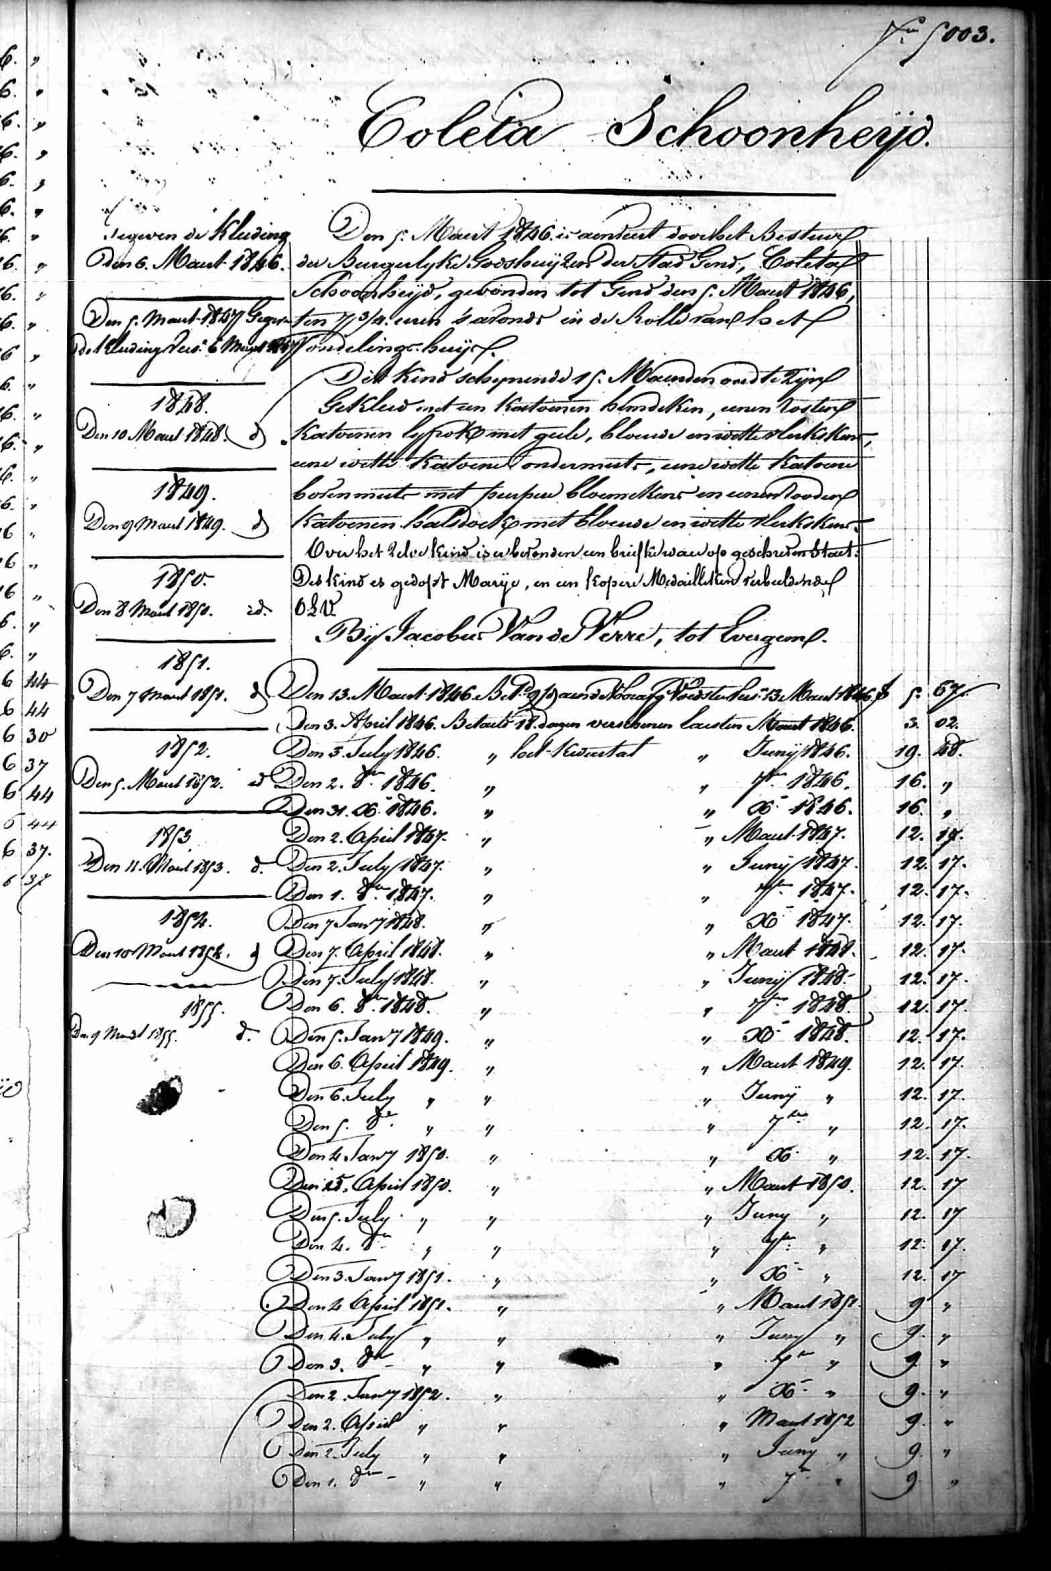 N.º 5003.
Coleta Schoonheyd.
Gegeven de Kleding
den 6. Maart 1846.
Den 5. Maart 1847 Gegeven
de Kleeding
1848.
Den 10 Maart 1848. d
1849.
Den 9 Maart 1849. d
1850
Den 8 Maart 1850. id.
1851.
Den 7 Maart 1851. d
1852.
Den 5. Maart 1852. id
1853
Den 11. Maart 1853. d.
1854.
Den 10 Maart 1854. d
1855.
Den 9 Maart 1855. d.
Den 5. Maart 1846. is aenveert door het Bestuur
der Burgerlyke Godshuyzen der Stad Gend, Coleta
Schoonheijd, gevonden tot Gend den 5. Maart 1846,
ten 7 3/4 uren 's avonds in de Rolle van het
Vondelings-huys.
Dit Kind schynende 15. Maenden oud te zyn
Gekleed met een Katoenen hemdeken, eenen
Katoenen met geele, blauwe en witte vlekskens,
eene witte Katoene ondermuts, eene witte Katoene
bovenmuts met purpere bloemekens en eenen rooden
Katoenen halsdoek met blauwe en witte vlekskens.
Over het zelve kind is er bevonden een briefke waer op geschreven Staet:
Dit kind is gedopt Marye, en een kopere Medailleken verbeeldende
O.L.V.
By Jacobus Van de Verre, tot Evergem.
Den 13. Maart 1846. 13 Maart 1846 5. 67
Den 3. April 1846. Betaelt 18. dagen verschenen laesten Maart 1846. 3. 02.
Den 3 July 1846. " het Kwartal " Junij 1846. 19. 48.
Den 2. 8er 1846. " " 7ber 1846. 16. "
Den 31. Xr 1846. " " Xr 1846. 16. "
Den 2. April 1847. " " Maart 1847. 12. 17.
Den 2. July 1847. " " Junij 1847. 12. 17.
Den 1. 8er 1847. " " 7ber 1847. 12. 17.
Den 7 Janry 1848. " " Xr 1847. 12. 17.
Den 7. April 1848. " " Maart 1848. 12. 17.
Den 7. July 1848. " " Junij 1848. 12. 17.
Den 6. 8er 1848. " " 7ber 1848. 12. 17.
Den 5. Janry 1849. " " Xr 1848. 12. 17.
Den 6. April 1849. " " Maart 1849. 12. 17.
Den 6. July " " " Junij " 12. 17.
Den 5. 8er " " " 7ber " 12. 17.
Den 4 Janry 1850. " " Xr " 12. 17.
Den 15. April 1850. " " Maart 1850. 12. 17
Den 5. July " " " Juny " 12. 17
Den 4. 8er " " " 7ber " 12. 17.
Den 3. Janry 1851. " " Xr " 12. 17
Den 4 April 1851. " " Maart 1851. 9 "
Den 4. July " " " Juny " 9. "
Den 3. 8er " " " 7ber " 9. "
Den 2. Janry 1852. " " Xr " 9. "
Den 2. April " " " Maart 1852 9. "
Den 2. July " " " Juny " 9. "
Den 1. 8er " " " 7ber " 9. "